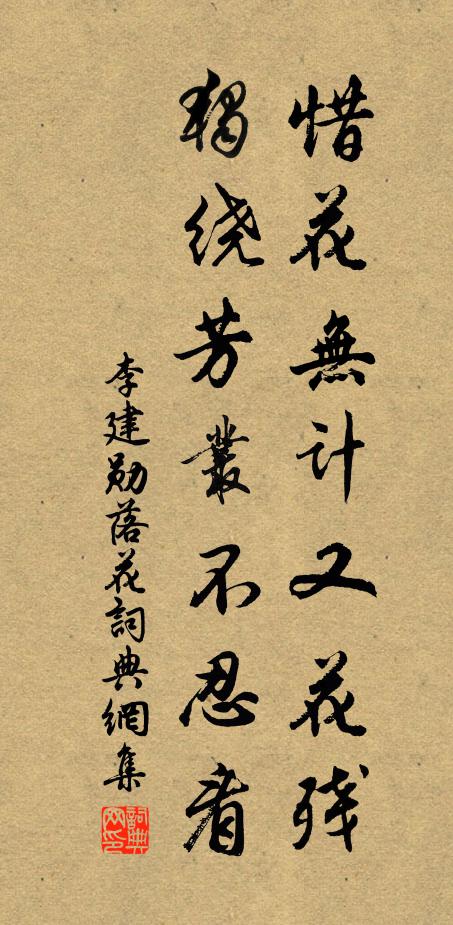 惜花無計又花残
獨绕芳叢不忍看
李建勋落花詞典網集
詞典网印